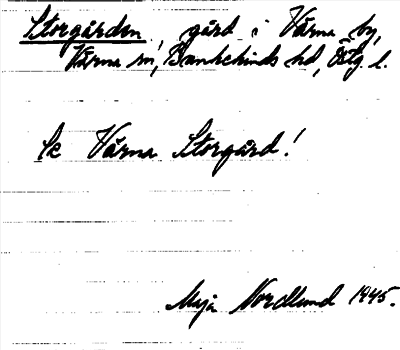 Storgården, gård i Vårna by,
Vårna sn, Bankekinds hd, Östg. l.
Se Vårna Storgård!
Maja Nordlund 1945.